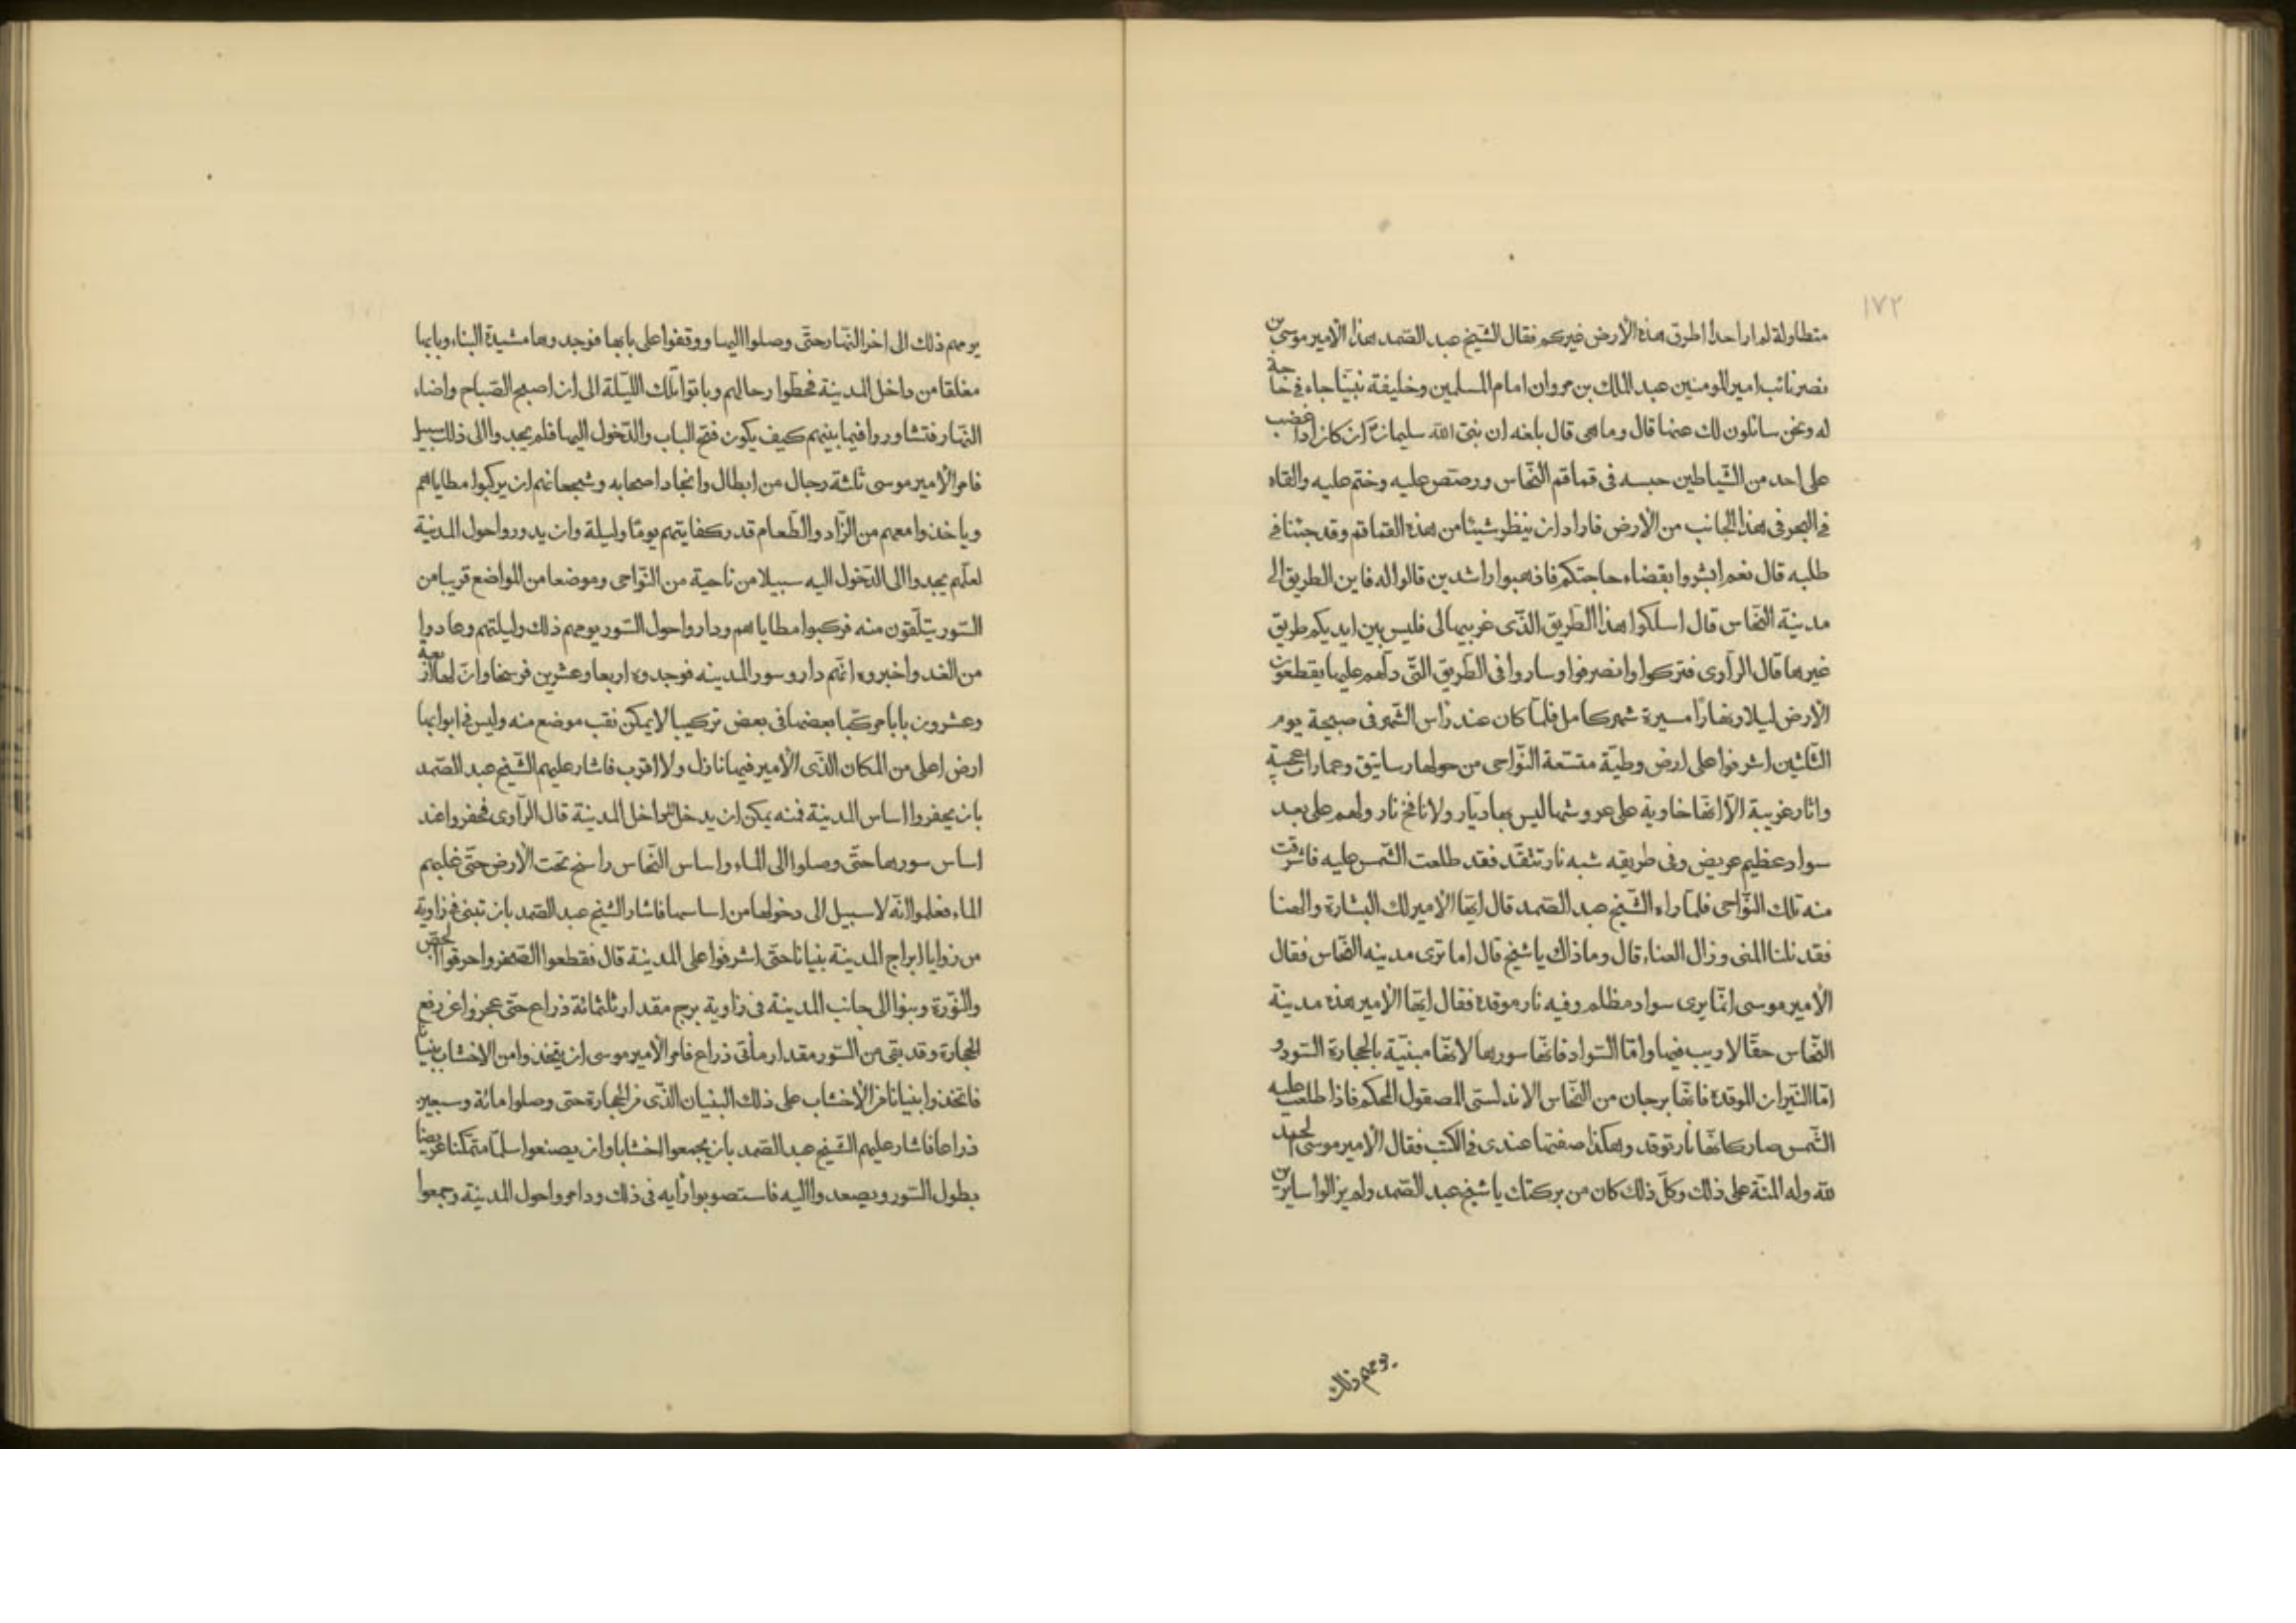 ١٧٢
متطاولة لم ار احدا اطرق هذه الأرض غيركم فقال الشّيخ عبد الصّمد هذا الأمير موسى بن
نصر نائب امير المومنين عبد الملك بن مروان امام المسلمين وخليفة نبيّنا جاء في حاجة
له ونحن سائلون لك عنها قال وما هى قال بلغه ان نبىّ الله سليمان كان اذا غضب
على احد من الشّياطين حبسه فى قماقم النّحاس ورصّص عليه وختم عليه والقاه
في البحر فى هذا الجانب من الأرض فاراد ان ينظر شيئا من هذه القماقم وقد جئنا في
طلبه قال نعم ابشروا بقضاء حاجتكم فاذهبوا راشدين قالوا له فاين الطريق الى
مدينة النّحاس قال اسلكوا هذا الطّريق الذّى غربيها الى فليس بين ايديكم طريق
غيرها قال الرّاوى فتركوا وانصرفوا وساروا فى الطّريق التّى دلّهم عليها يقطعون
الأرض ليلا ونهارًا مسيرة شهر كامل فلمّا كان عند رأس الشّهر فى صبيحة يوم
الثّلثين اشرفوا على ارض وطيّة متّسعة النّواحى من حولها رساتيق وعمارات عجيبة
واثار غريبة الّا انّها خاوية على عروشها ليس بها ديّار ولا نافخ نار ولهم على بعد
سواد عظيم عريض وفى طريقه شبه نار تتّقد فقد طلعت الشّمس عليه فاشرقت
منه تلك النّواحى فلمّا راه الشّيخ عبد الصّمد قال ايّها الأمير لك البشارة والهنا
فقد نلنا المنى وزال العناء قال وما ذاك يا شيخ قال اما ترى مدينه النّحاس فقال
الأمير موسى انّما يرى سواد مظلم وفيه نار موقدة فقال ايّها الأمير هذه مدينة
النّحاس حقّا لا ريب فيها وامّا السّواد فانّها سورها لانّها مبنيّة بالحجارة السّود و
امّا النّيران الموقدة فانّها برجان من النّحاس الاندلسىّ المصقول المحكم فاذا طلعت عليه
الشّمس صار كانّها نار توقد وهكذا صفتها عندى في الكتب فقال الأمير موسى الحمد
لله وله المنّة على ذلك وكلّ ذلك كان من بركتك يا شيخ عبد الصّمد ولم يزالوا سايرين
يومهم ذلك
يومهم ذلك الى اخر النّهار حتّى وصلوا اليها ووقفوا على بابها فوجدوها مشيدة البناء وبابها
مغلقا من داخل المدينة فحطّوا رحالهم وباتوا تلك اللّيلة الى ان اصبح الصّباح واضاء
النّهار فتشاوروا فيما بينهم كيف يكون فتح الباب والدّخول اليها فلم يجدوا الى ذلك سبيلا
فامر الأمير موسى ثلثة رجال من ابطال وانجاد اصحابه وشجعانهم ان يركبوا مطاياهم
وياخذوا معهم من الزّاد والطّعام قدر كفايتهم يومًا وليلة وان يدوروا حول المدينة
لعلّهم يجدوا الى الدّخول اليه سبيلا من ناحية من النّواحى وموضعا من المواضع قريبا من
السّور يتلّقون منه فركبوا مطاياهم وداروا حول السّور يومهم ذلك وليلتهم وعادوا
من الغد واخبروه انّهم داروا سور المدينه فوجدوه اربعا وعشرين فرسخا وانّ لها اربعة
وعشرون بابا مركّبا بعضها فى بعض تركيبا لا يمكن نقب موضع منه وليس في ابوابها
ارض اعلى من المكان الذّى الأمير فيها نازل ولا اقرب فاشار عليهم الشّيخ عبد الصّمد
بان يحفروا اساس المدينة فمنه يمكن ان يدخل داخل المدينة قال الرّاوى فحفروا عند
اساس سورها حتّى وصلوا الى الماء واساس النّحاس راسخ تحت الأرض حتّى غلبهم
الماء فعلموا انّه لا سبيل الى دخولها من اساسها فاشار الشّيخ عبد الصّمد بان تبنى في زاوية
من زوايا ابراج المدينة بنيانا حتّى اشرفوا على المدينة قال فقطعوا الصّخر واحرقوا الجصّ
والنّورة وبنوا الى جانب المدينة فى زاوية برج مقدار ثلثمائة ذراع حتّى عجزوا عن رفع
الحجارة وقد بقى من السّور مقدار مأتى ذراع فامر الأمير موسى ان يتّخذوا من الأخشاب بنيانًا
فاتّخذوا بنيانا من الأخشاب على ذلك البنيان الذّى من الحجارة حتى وصلوا مائة وسبعين
ذراعا فاشار عليهم الشّيخ عبد الصّمد بان يجمعوا اخشابا وان يصنعوا سلّما متمكّنا عريضا
بطول السّور ويصعدوا اليه فاستصوبوا رأيه فى ذلك وداروا حول المدينة وجمعوا